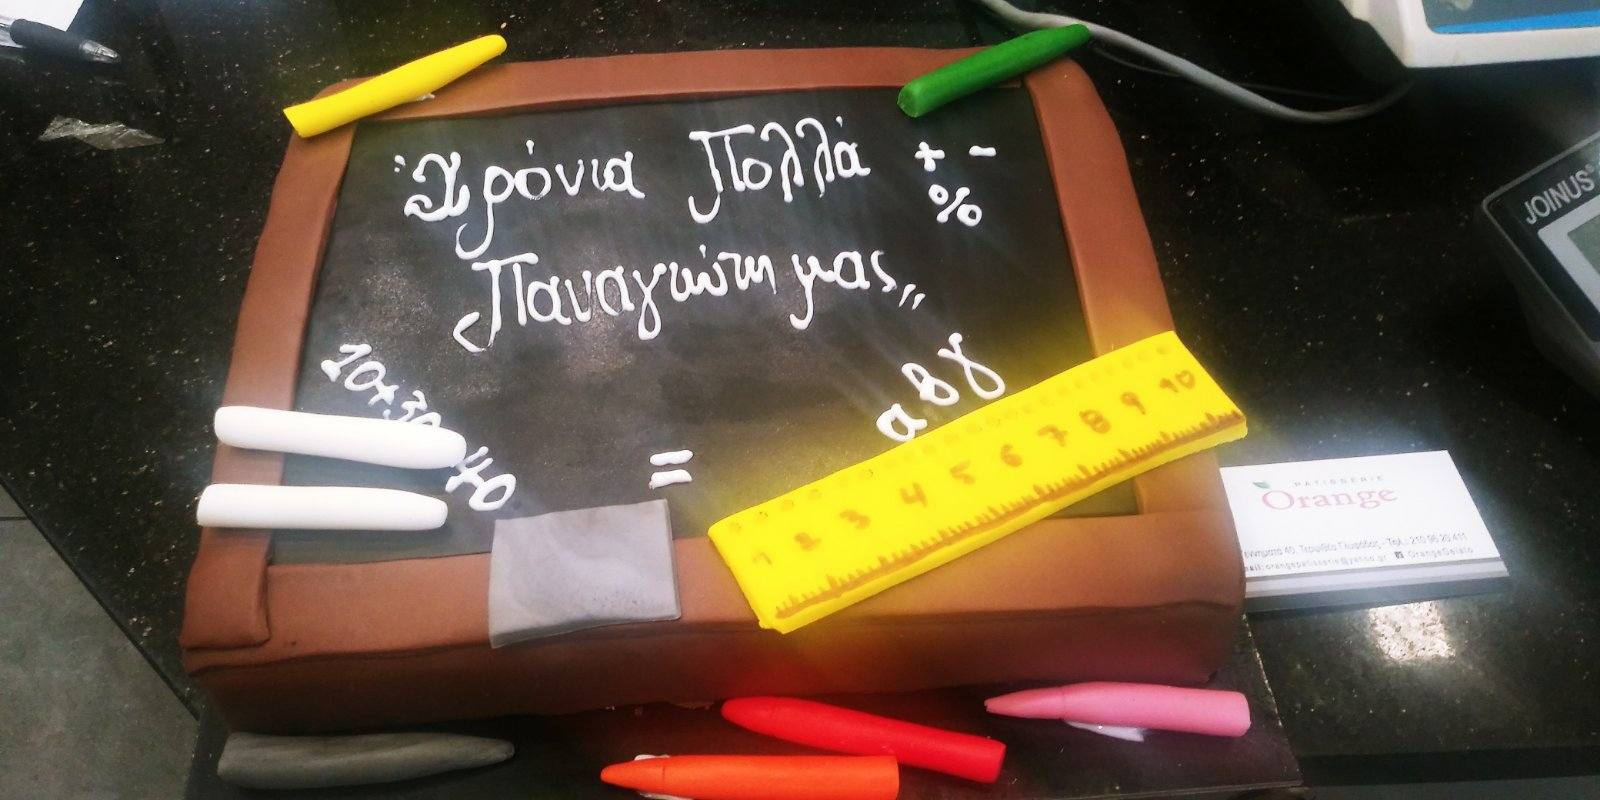 Χρόνια Πολλά
Παναγιώτη μας,,
+ -
%
10+30
40
=
α β γ
1 2 3 4 5 6 7 8 9 10
JOINUS
PATISSERIE
Orange
40, Τερψιθέα Γλυφάδας - Τηλ.: 210 96 20 411
orangepatisserie@yahoo.gr OrangeGelato